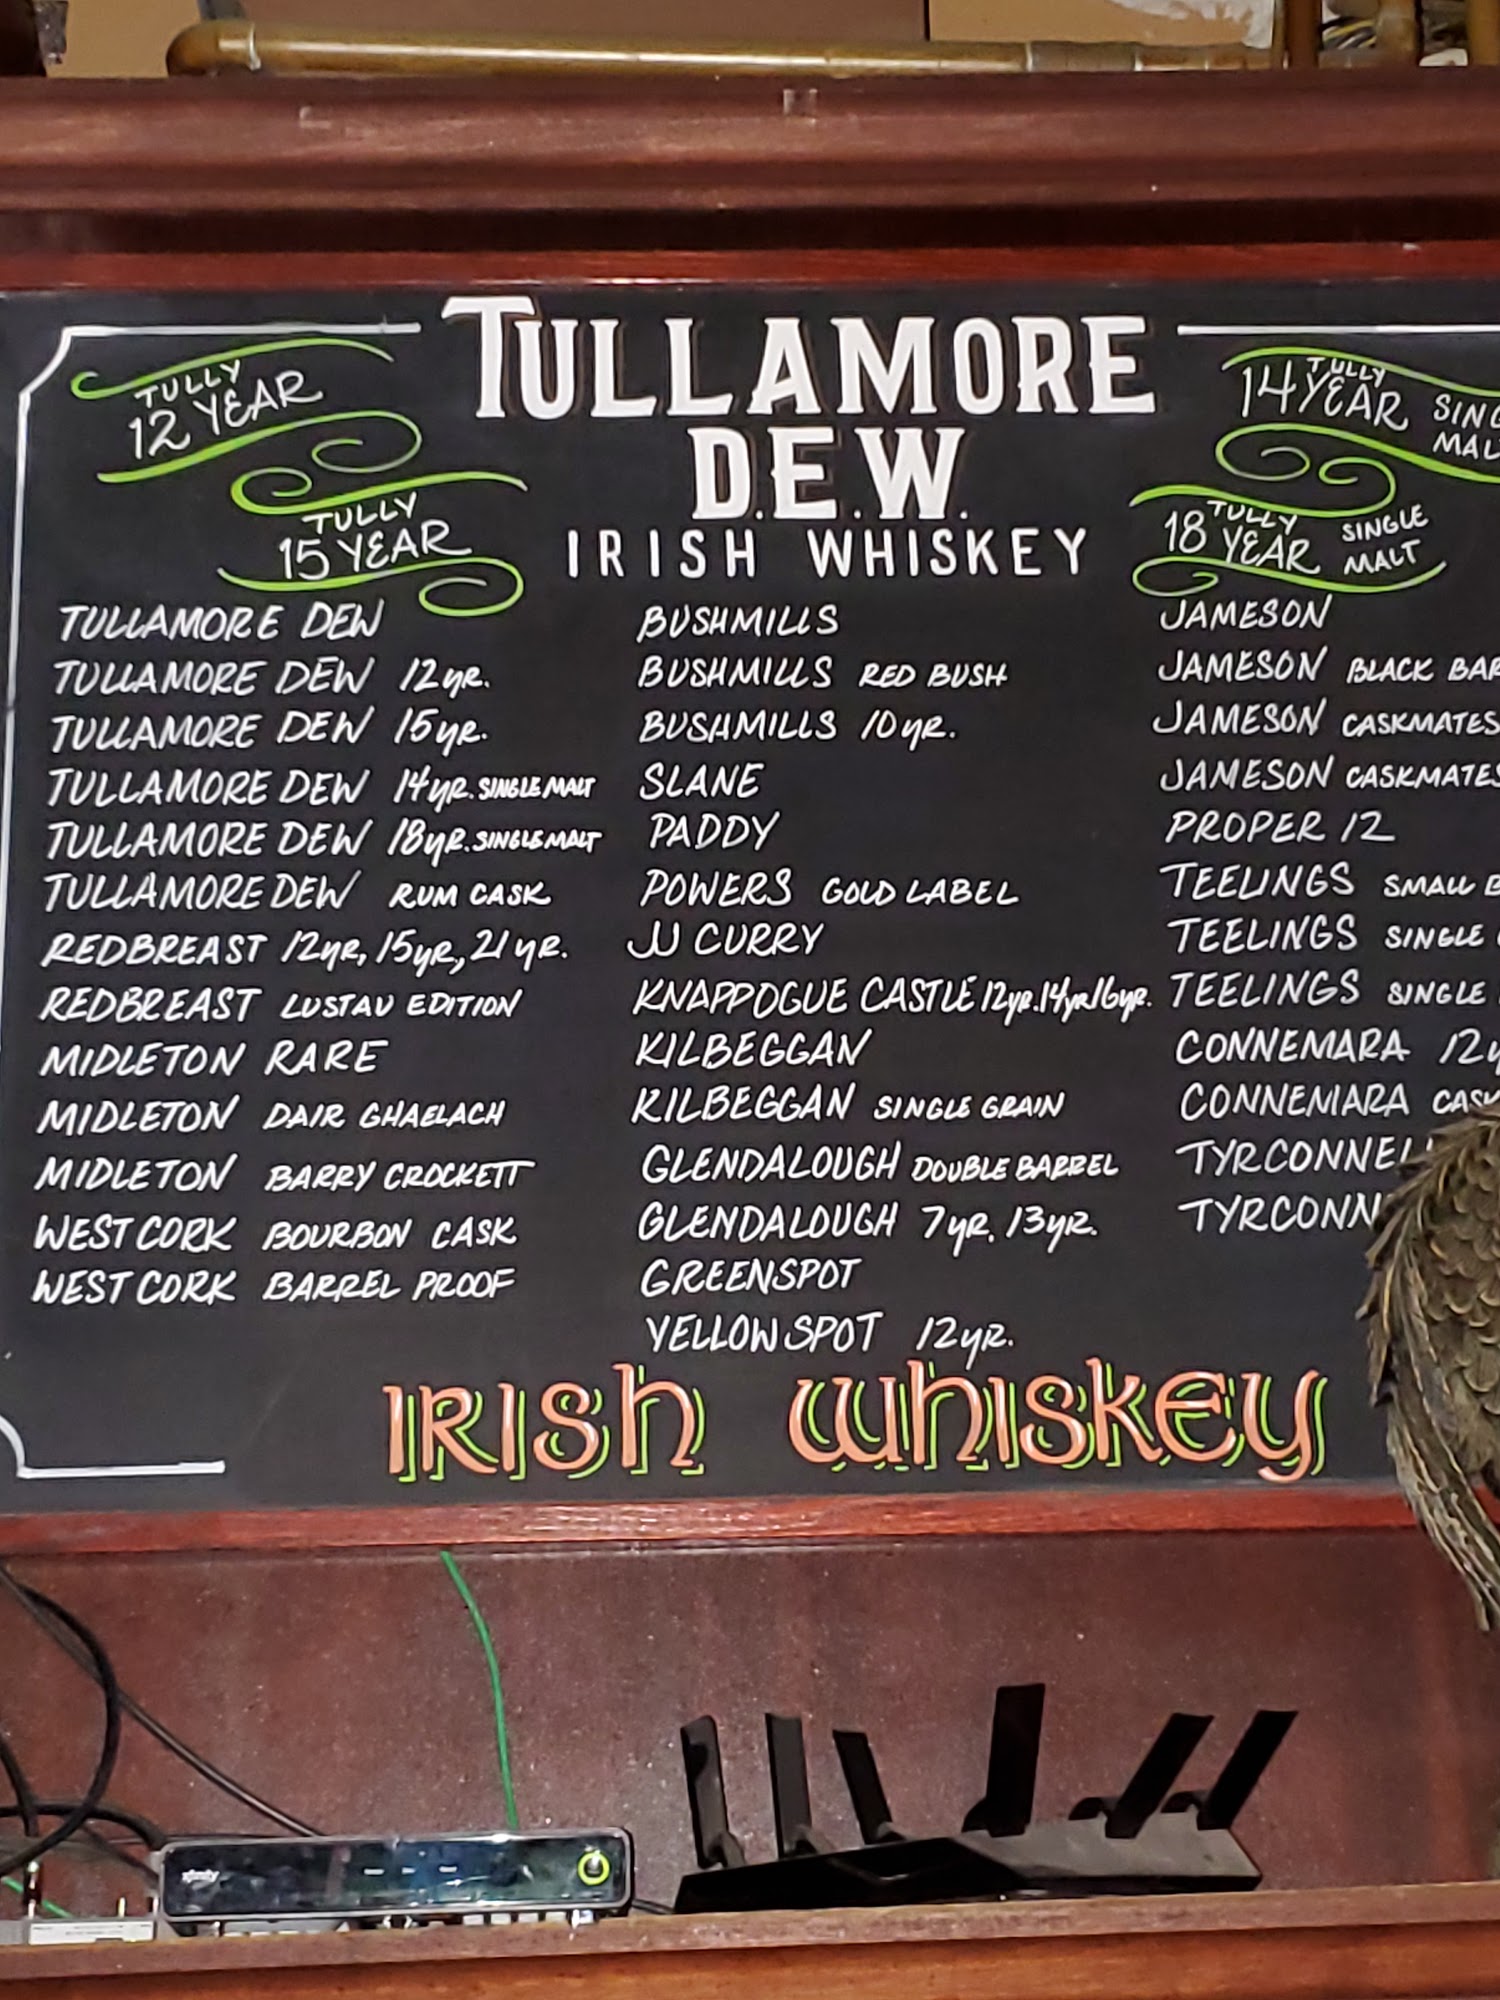 TULLAMORE
D.E.W.
IRISH WHISKEY
TULLY
12 YEAR
TULLY
15 YEAR
TULLY
14 YEAR
TULLY
18 YEAR
SINGLE
MALT
TULLAMORE DEW
TULLAMORE DEW 12yr.
TULLAMORE DEW 15yr.
TULLAMORE DEW 14yr. SINGLE MALT
TULLAMORE DEW 18yr. SINGLE MALT
TULLAMORE DEW RUM CASK
REDBREAST 12yr, 15yr, 21yr.
REDBREAST LUSTAU EDITION
MIDLETON RARE
MIDLETON DAIR GHAELACH
MIDLETON BARRY CROCKETT
WEST CORK BOURBON CASK
WEST CORK BARREL PROOF
BUSHMILLS
BUSHMILLS RED BUSH
BUSHMILLS 10yr.
SLANE
PADDY
POWERS GOLD LABEL
JJ CURRY
KNAPPOGUE CASTLE 12yr. 14yr 16yr.
KILBEGGAN
KILBEGGAN SINGLE GRAIN
GLENDALOUGH DOUBLE BARREL
GLENDALOUGH 7yr. 13yr.
GREENSPOT
YELLOW SPOT 12yr.
JAMESON
JAMESON BLACK
JAMESON CASKMATES
JAMESON CASKMATES
PROPER 12
TEELINGS SMALL
TEELINGS SINGLE
TEELINGS SINGLE
CONNEMARA
CONNEMARA
IRISH WHISKEY
xfinity